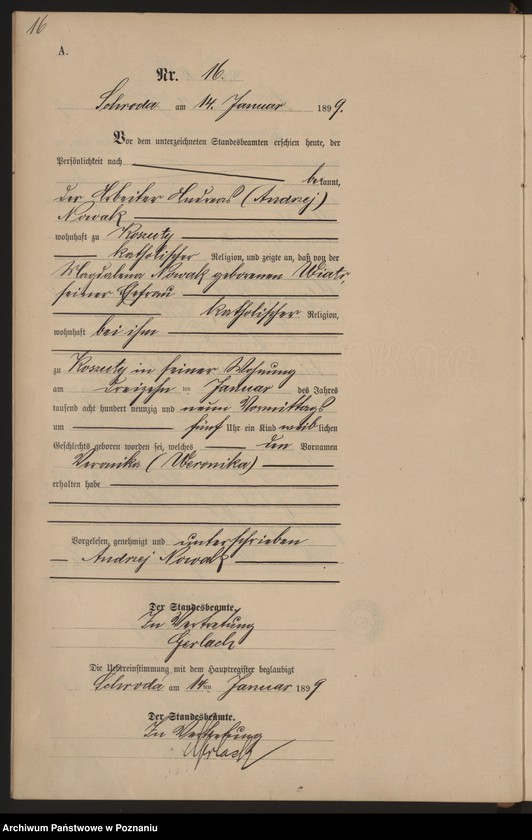 16
A.
Nr. 16.
Schroda am 14. Januar 1899.
Vor dem unterzeichneten Standesbeamten erschien heute, der
Persönlichkeit nach
bekannt,
der Arbeiter Andreas (Andrzej)
Nowak
wohnhaft zu Koszuty
katholischer Religion, und zeigte an, daß von der
Magdalena Nowak geborenen Wiatr,
seiner Ehefrau
katholischer Religion,
wohnhaft bei ihm
zu Koszuty in seiner Wohnung
am dreizehn ten Januar des Jahres
tausend acht hundert neunzig und neun Vormittags
um fünf Uhr ein Kind weiblichen
Geschlechts geboren worden sei, welches den Vornamen
Veronika (Weronika)
erhalten habe
Vorgelesen, genehmigt und unterschrieben
Andrzej Nowak
Der Standesbeamte.
In Vertretung
Gerlach
Die Uebereinstimmung mit dem Hauptregister beglaubigt
Schroda am 14ten Januar 1899
Der Standesbeamte.
In Vertretung
Gerlach
Archiwum Państwowe w Poznaniu